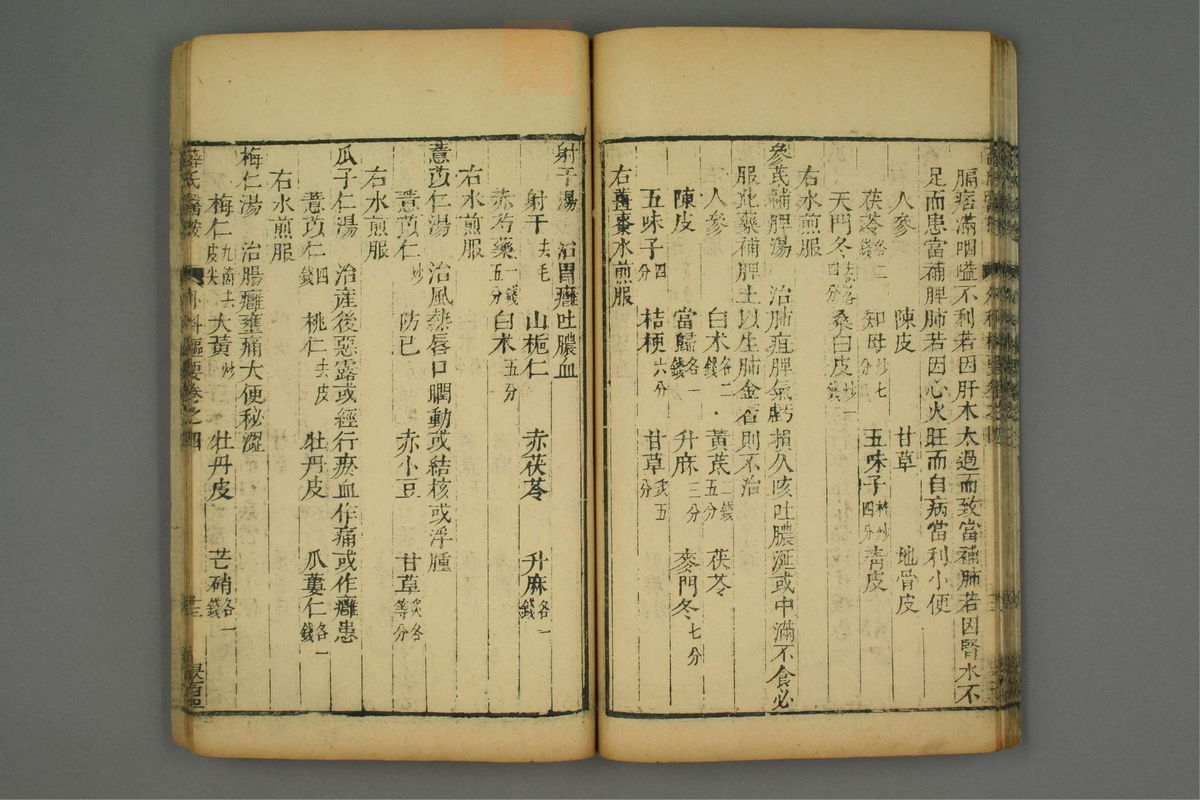 膈痞滿咽嗌不利若因肝木太過而致當補肺若因腎水不
足而患當補脾肺若因心火旺而自病當利小便
人參 陳皮 甘草 地骨皮
茯苓各二錢 知母炒七分 五味子炒四分 青皮
天門冬去心各四分 桑白皮炒一錢
右水煎服
參芪補脾湯 治肺疽脾氣虧損久咳吐膿涎或中滿不食必
服此藥補脾土以生肺金否則不治
人參 白朮各二錢 黃芪二錢五分 茯苓
陳皮 當歸各一錢 升麻三分 麥門冬七分
五味子四分 桔梗六分 甘草炙五分
右薑棗水煎服
射干湯 治胃癰吐膿血
射干去毛 山梔仁 赤茯苓 升麻各一錢
赤芍藥一錢五分 白朮五分
右水煎服
薏苡仁湯 治風熱唇口瞤動或結核或浮腫
薏苡仁炒 防己 赤小豆 甘草炙各等分
右水煎服
瓜子仁湯 治產後惡露或經行瘀血作痛或作癰患
薏苡仁四錢 桃仁去皮 牡丹皮 瓜蔞仁各一錢
右水煎服
梅仁湯 治腸癰壅痛大便秘澀
梅仁九箇去皮尖 大黃炒 牡丹皮 芒硝各一錢
薛氏醫按 外科樞要卷之四 十三